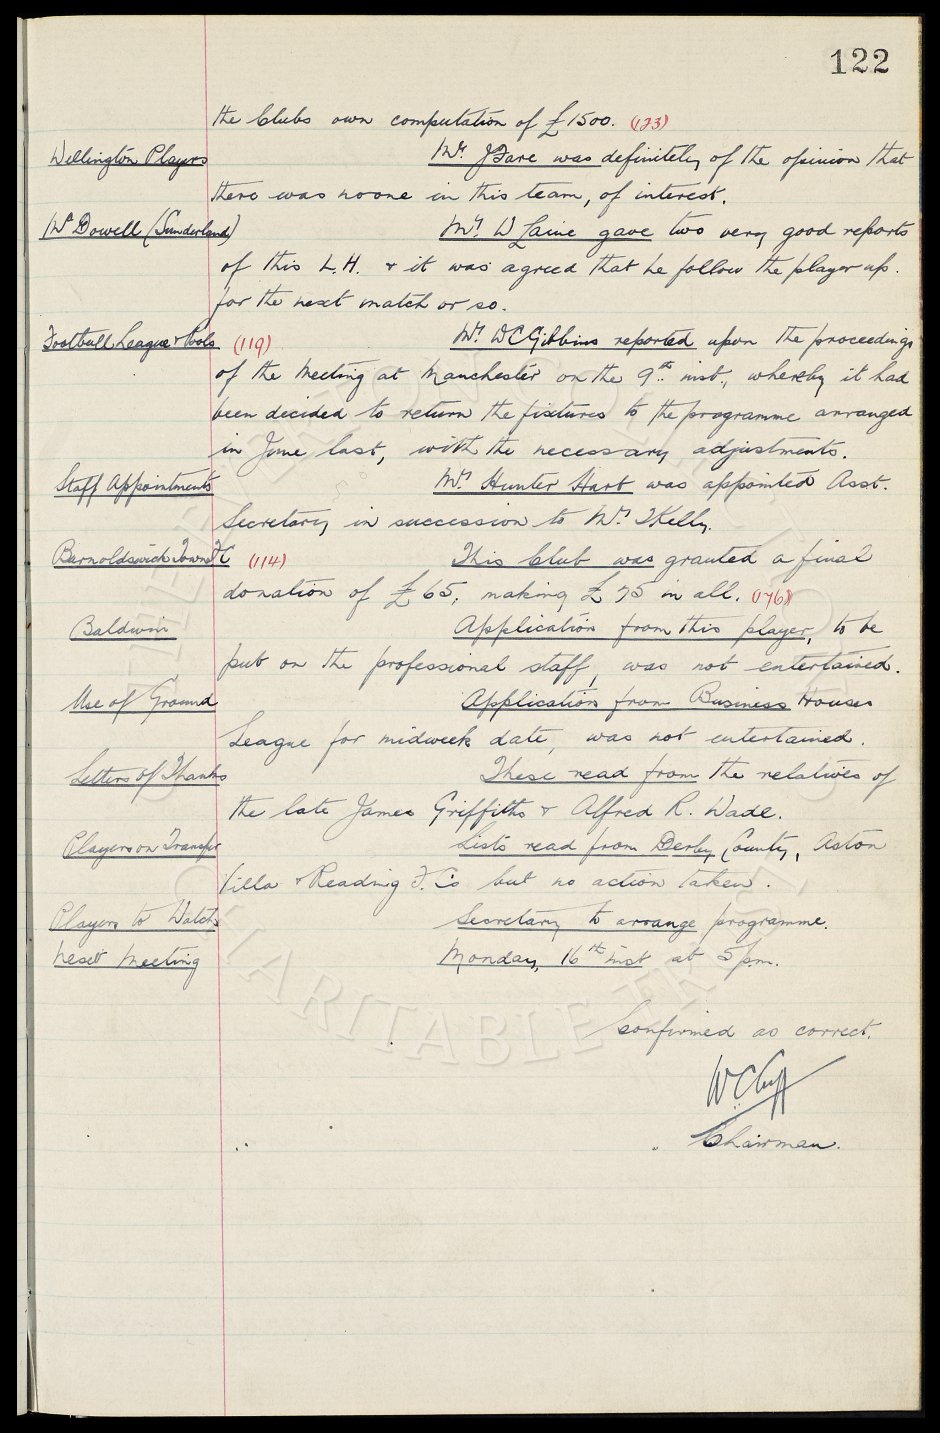 122
the Clubs own computation of £1500. (123)
Wellington Players Mr. J Fare was definitely of the opinion that
there was no one in this team, of interest.
McDowell (Sunderland) Mr. W Laine gave two very good reports
of this L.H. & it was agreed that he follow the player up.
for the next match or so.
Football League & Pools (119) Mr. WC Gibbins reported upon the proceedings
of the Meeting at Manchester on the 9th inst., whereby it had
been decided to return the fixtures to the programme arranged
in June last, with the necessary adjustments.
Staff Appointments Mr. Hunter Hart was appointed Asst.
Secretary in succession to Mr. T Kelly.
Barnoldswick Town FC (114) This Club was granted a final
donation of £65, making £75 in all. (176)
Baldwin Application from this player, to be
put on the professional staff, was not entertained.
Use of Ground Application from Business Houses
League for midweek date, was not entertained.
Letters of Thanks These read from the relatives of
the late James Griffiths & Alfred R. Wade.
Players on Transfer Lists read from Derby County, Aston
Villa & Reading F.Cs but no action taken.
Players to Watch Secretary to arrange programme.
Next Meeting Monday, 16th inst at 5pm.
Confirmed as correct.
WC Cuff
Chairman.
THE EVERTON COLLECTION
CHARITABLE TRUST